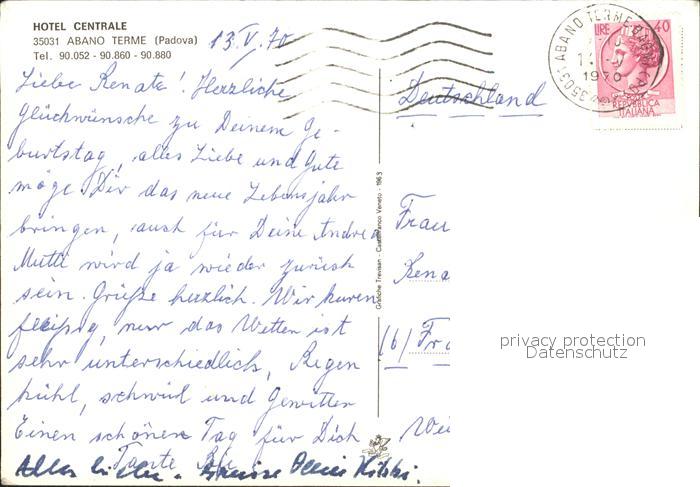 HOTEL CENTRALE
35031 ABANO TERME (Padova)
Tel. 90.052 - 90.860 - 90.880
13.V.70
Liebe Renate! Herzliche
Glückwünsche zu Deinem Ge-
burtstag, alles Liebe und Gute
möge Dir das neue Lebensjahr
bringen, auch für Deine Andrea
Mutti wird ja wieder zurück
sein. Grüße herzlich. Wir kuren
fleißig, nur das Wetter ist
sehr unterschiedlich, Regen
kühl, schwül und Gewitter
Einen schönen Tag für Dich
Tante
Alles Liebe.
Grafiche Trevisan - Castelfranco Veneto - 1963
35031 ABANO TERME
1970
LIRE 40
REPUBBLICA
ITALIANA
Deutschland
Frau
Rena
(6) Fr
Wei
privacy protection
Datenschutz